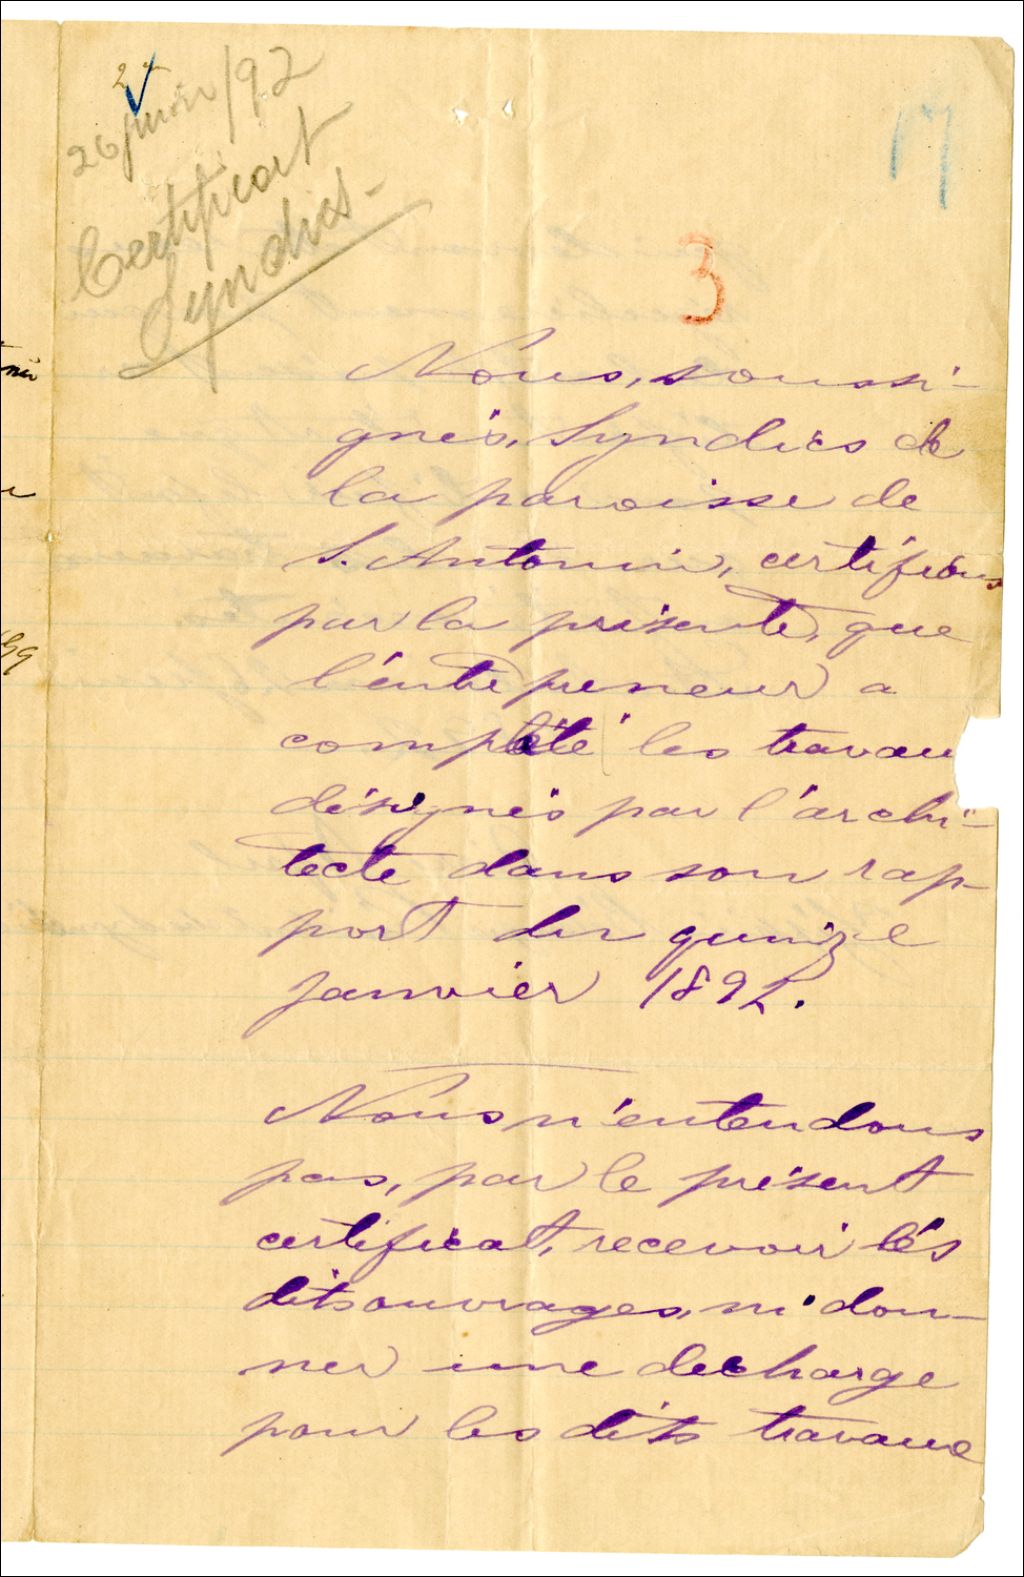 26 janvier /92
Certificat
Syndics -
3
Nous, soussi-
gnés, Syndics de
la paroisse de
S. Antonin, certifions
par la présente, que
l'entrepreneur a
complété les travau
désignés par l'archi-
tecte dans son rap-
port du quinze
janvier 1892.
Nous n'entendons
pas, par le présent
certificat, recevoir les
dits ouvrages, ni don-
ner une decharge
pour les dits travaux